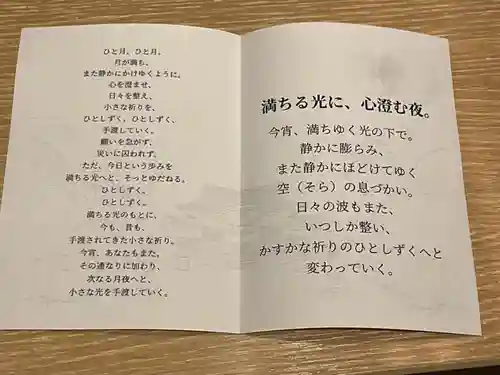 ひと月、ひと月、
月が満ち、
また静かにかけゆくように。
心を澄ませ、
日々を整え、
小さな祈りを、
ひとしずく、ひとしずく、
手渡していく。
願いを急がず、
災いに囚われず、
ただ、今日という歩みを
満ちる光へと、そっとゆだねる。
ひとしずく。
ひとしずく。
満ちる光のもとに、
今も、昔も、
手渡されてきた小さな祈り。
今宵、あなたもまた、
その連なりに加わり、
次なる月夜へと、
小さな光を手渡していく。
満ちる光に、心澄む夜。
今宵、満ちゆく光の下で。
静かに膨らみ、
また静かにほどけてゆく
空（そら）の息づかい。
日々の波もまた、
いつしか整い、
かすかな祈りのひとしずくへと
変わっていく。